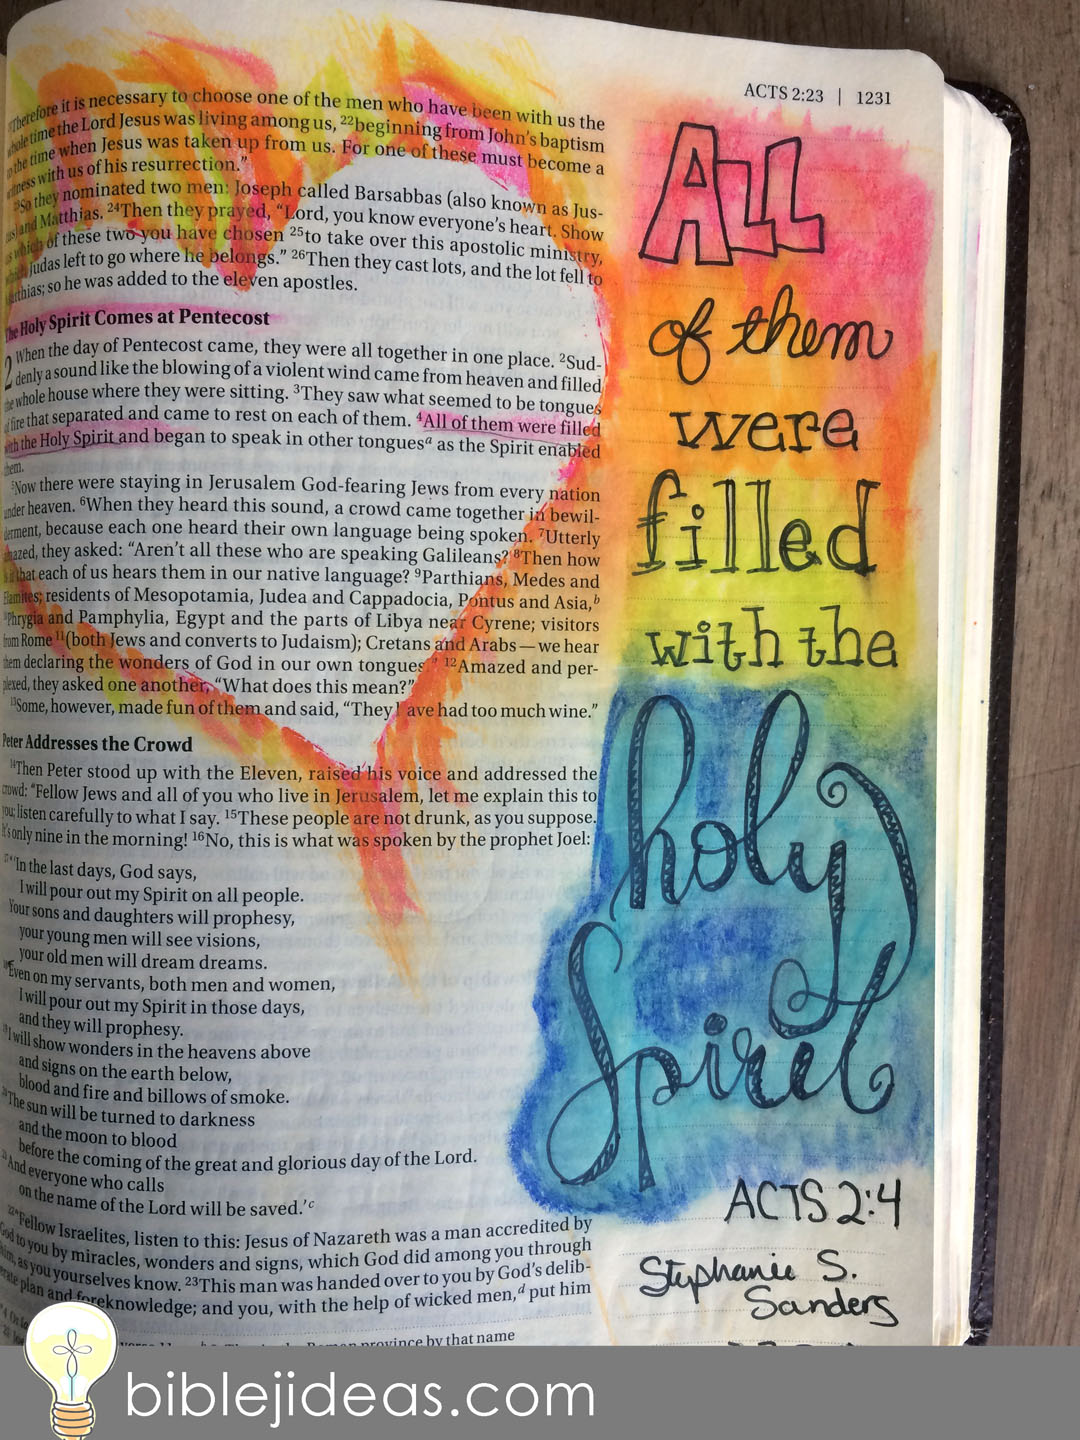 ACTS 2:23 | 1231
Therefore it is necessary to choose one of the men who have been with us the
whole time the Lord Jesus was living among us, 22beginning from John's baptism
to the time when Jesus was taken up from us. For one of these must become a
witness with us of his resurrection."
23So they nominated two men: Joseph called Barsabbas (also known as Jus-
tus) and Matthias. 24Then they prayed, "Lord, you know everyone's heart. Show
us which of these two you have chosen 25to take over this apostolic ministry,
which Judas left to go where he belongs." 26Then they cast lots, and the lot fell to
Matthias; so he was added to the eleven apostles.
The Holy Spirit Comes at Pentecost
2 When the day of Pentecost came, they were all together in one place. 2Sud-
denly a sound like the blowing of a violent wind came from heaven and filled
the whole house where they were sitting. 3They saw what seemed to be tongues
of fire that separated and came to rest on each of them. 4All of them were filled
with the Holy Spirit and began to speak in other tonguesa as the Spirit enabled
them.
5Now there were staying in Jerusalem God-fearing Jews from every nation
under heaven. 6When they heard this sound, a crowd came together in bewil-
derment, because each one heard their own language being spoken. 7Utterly
amazed, they asked: "Aren't all these who are speaking Galileans? 8Then how
is it that each of us hears them in our native language? 9Parthians, Medes and
Elamites; residents of Mesopotamia, Judea and Cappadocia, Pontus and Asia,b
10Phrygia and Pamphylia, Egypt and the parts of Libya near Cyrene; visitors
from Rome 11(both Jews and converts to Judaism); Cretans and Arabs—we hear
them declaring the wonders of God in our own tongues!" 12Amazed and per-
plexed, they asked one another, "What does this mean?"
13Some, however, made fun of them and said, "They have had too much wine."
Peter Addresses the Crowd
14Then Peter stood up with the Eleven, raised his voice and addressed the
crowd: "Fellow Jews and all of you who live in Jerusalem, let me explain this to
you; listen carefully to what I say. 15These people are not drunk, as you suppose.
It's only nine in the morning! 16No, this is what was spoken by the prophet Joel:
17"'In the last days, God says,
I will pour out my Spirit on all people.
Your sons and daughters will prophesy,
your young men will see visions,
your old men will dream dreams.
18Even on my servants, both men and women,
I will pour out my Spirit in those days,
and they will prophesy.
19I will show wonders in the heavens above
and signs on the earth below,
blood and fire and billows of smoke.
20The sun will be turned to darkness
and the moon to blood
before the coming of the great and glorious day of the Lord.
21And everyone who calls
on the name of the Lord will be saved.'c
22"Fellow Israelites, listen to this: Jesus of Nazareth was a man accredited by
God to you by miracles, wonders and signs, which God did among you through
him, as you yourselves know. 23This man was handed over to you by God's delib-
erate plan and foreknowledge; and you, with the help of wicked men,d put him
province by that name
All
of them
were
filled
with the
holy
Spirit
ACTS 2:4
Stephanie S.
Sanders
biblejideas.com